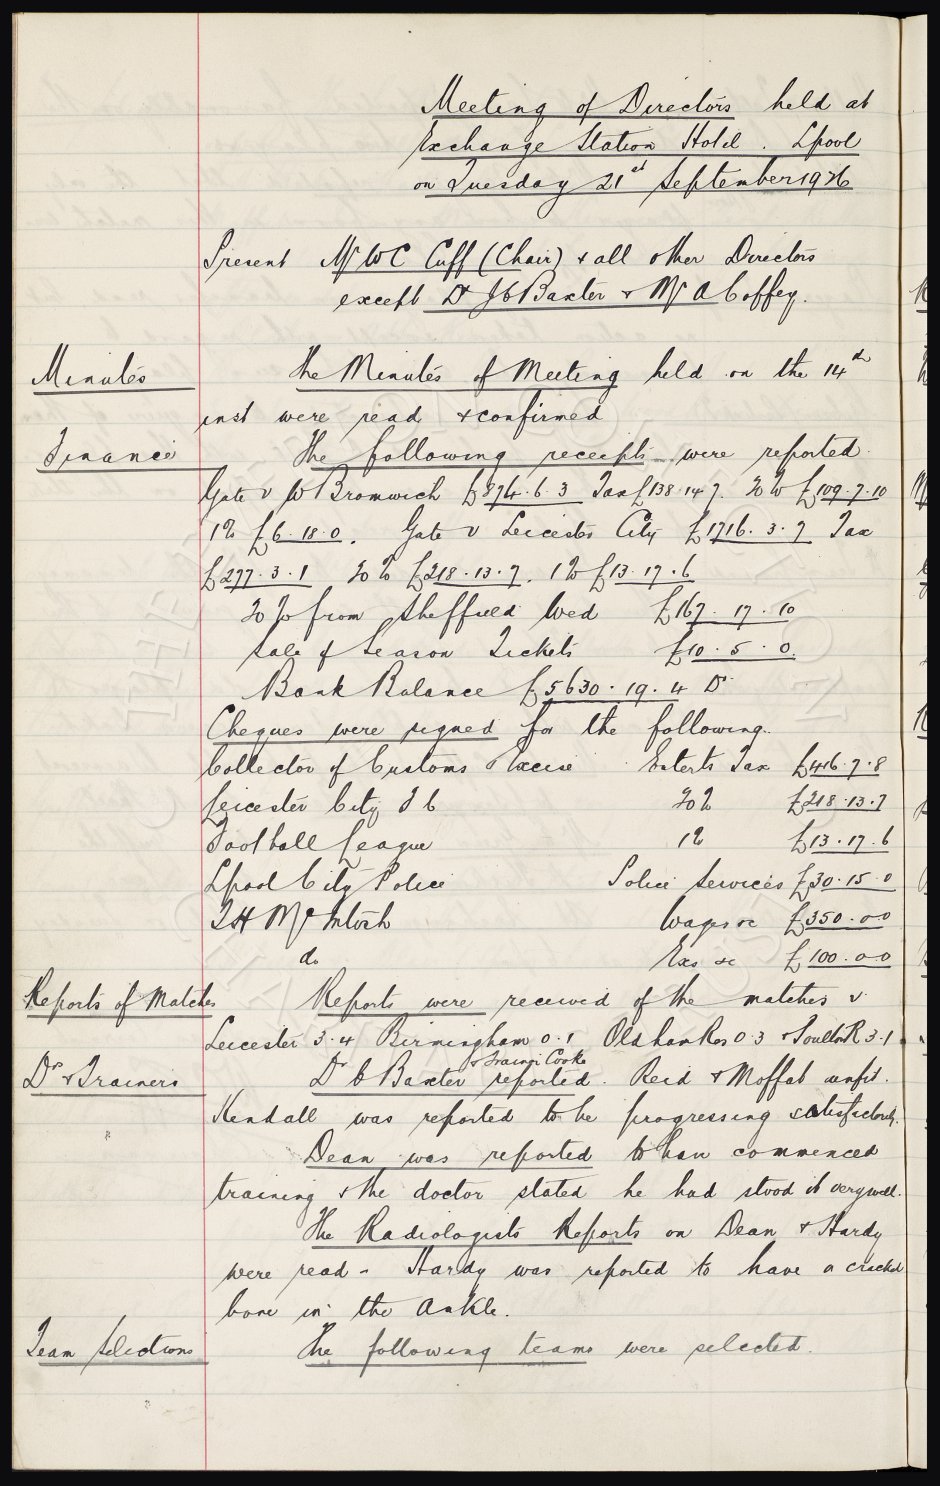 Meeting of Directors held at
Exchange Station Hotel. Lpool
on Tuesday 21st September 1926
Present Mr W C Cuff (Chair) & all other Directors
except Dr J C Baxter & Mr A Coffey.
Minutes The Minutes of Meeting held on the 14th
inst were read & confirmed
Finance The following receipts were reported.
Gate v W Bromwich £874.6.3 Tax £138.14.7. 20% £109.7.10
1% £6.18.0. Gate v Leicester City £1716.3.7 Tax
£277.3.1 20% £218.13.7. 1% £13.17.6
20% from Sheffield Wed £167.17.10
Sale of Season Tickets £10.5.0.
Bank Balance £5630.19.4 Dr
Cheques were signed for the following.
Collector of Customs & Excise Enterts Tax £416.7.8
Leicester City F C 20% £218.13.7
Football League 1% £13.17.6
Lpool City Police Police Services £30.15.0
T H McIntosh Wages &c £350.0.0
do Exs &c £100.0.0
Reports of Matches Reports were received of the matches v
Leicester 3.4 Birmingham 0.1 Oldham Res 0.3 & R 3.1
& Trainer Cooke
Drs & Trainers Dr C Baxter reported. Reid & Moffat unfit.
Kendall was reported to be progressing satisfactorily.
Dean was reported to have commenced
training & the doctor stated he had stood it very well.
The Radiologists Reports on Dean & Hardy
were read - Hardy was reported to have a cracked
bone in the Ankle.
Team Selections The following teams were selected.